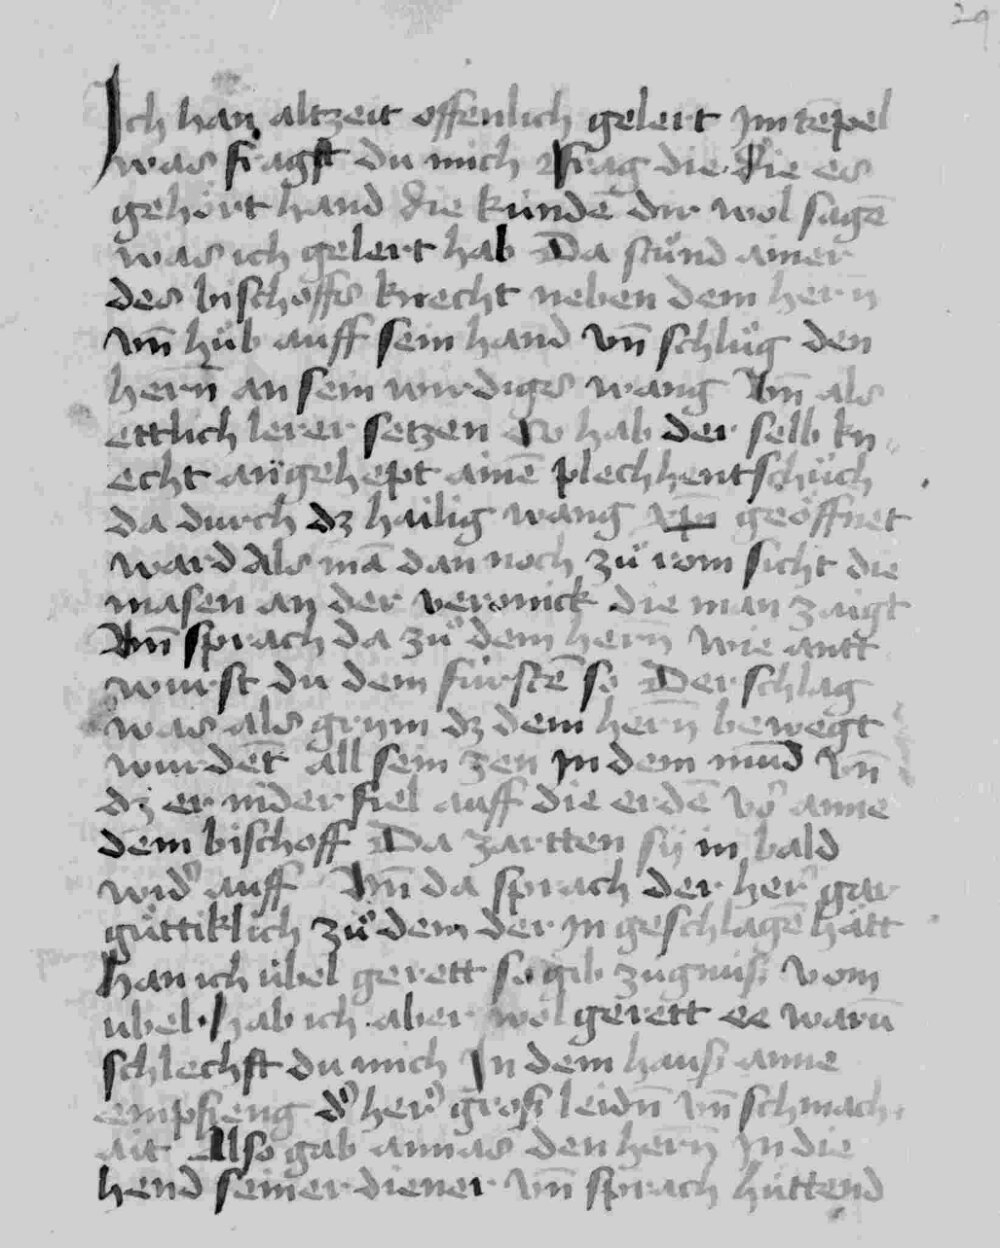 29
Ich han altzeit offenlich gelert Im tēpel
was fragst du mich Frag die die es
gehört hand die kündē dir wol sagē
was ich gelert hab Da stůnd ainer
des bischoffs knecht neben dem hern̄
vn̄ hůb auff sein hand vn̄ schlůg den
hern̄ an sein wirdigs wang Vn̄ als
ettlich lerer setzen so hab der selb kn
echt angehept ainē plechhentschůch
da durch dz hailig wang geöffnet
ward Als mā dan noch zů rom sicht die
masen an der veronick die man zaigt
Vn̄ sprach da zů dem hern̄ wie antt
wurst du dem fürstē so Der schlag
was als grym dz dem hern̄ bewegt
wurdēt all sein zen In dem mūd vn̄
dz er nider fiel auff die erdē vō anne
dem bischoff Da zartten sÿ in bald
wid' auff Vn̄ da sprach der her' gar
gůttiklich zů dem der In geschlagē hätt
han ich übel gerett so gib zügnüß vom
übel · hab ich aber wol gerett ee warū
schlechst du mich In dem hauß anne
empfieng d' her' groß leidn̄ vn̄ schmach
ait Also gab annas den hern̄ In die
hend seiner diener vn̄ sprach hüttend